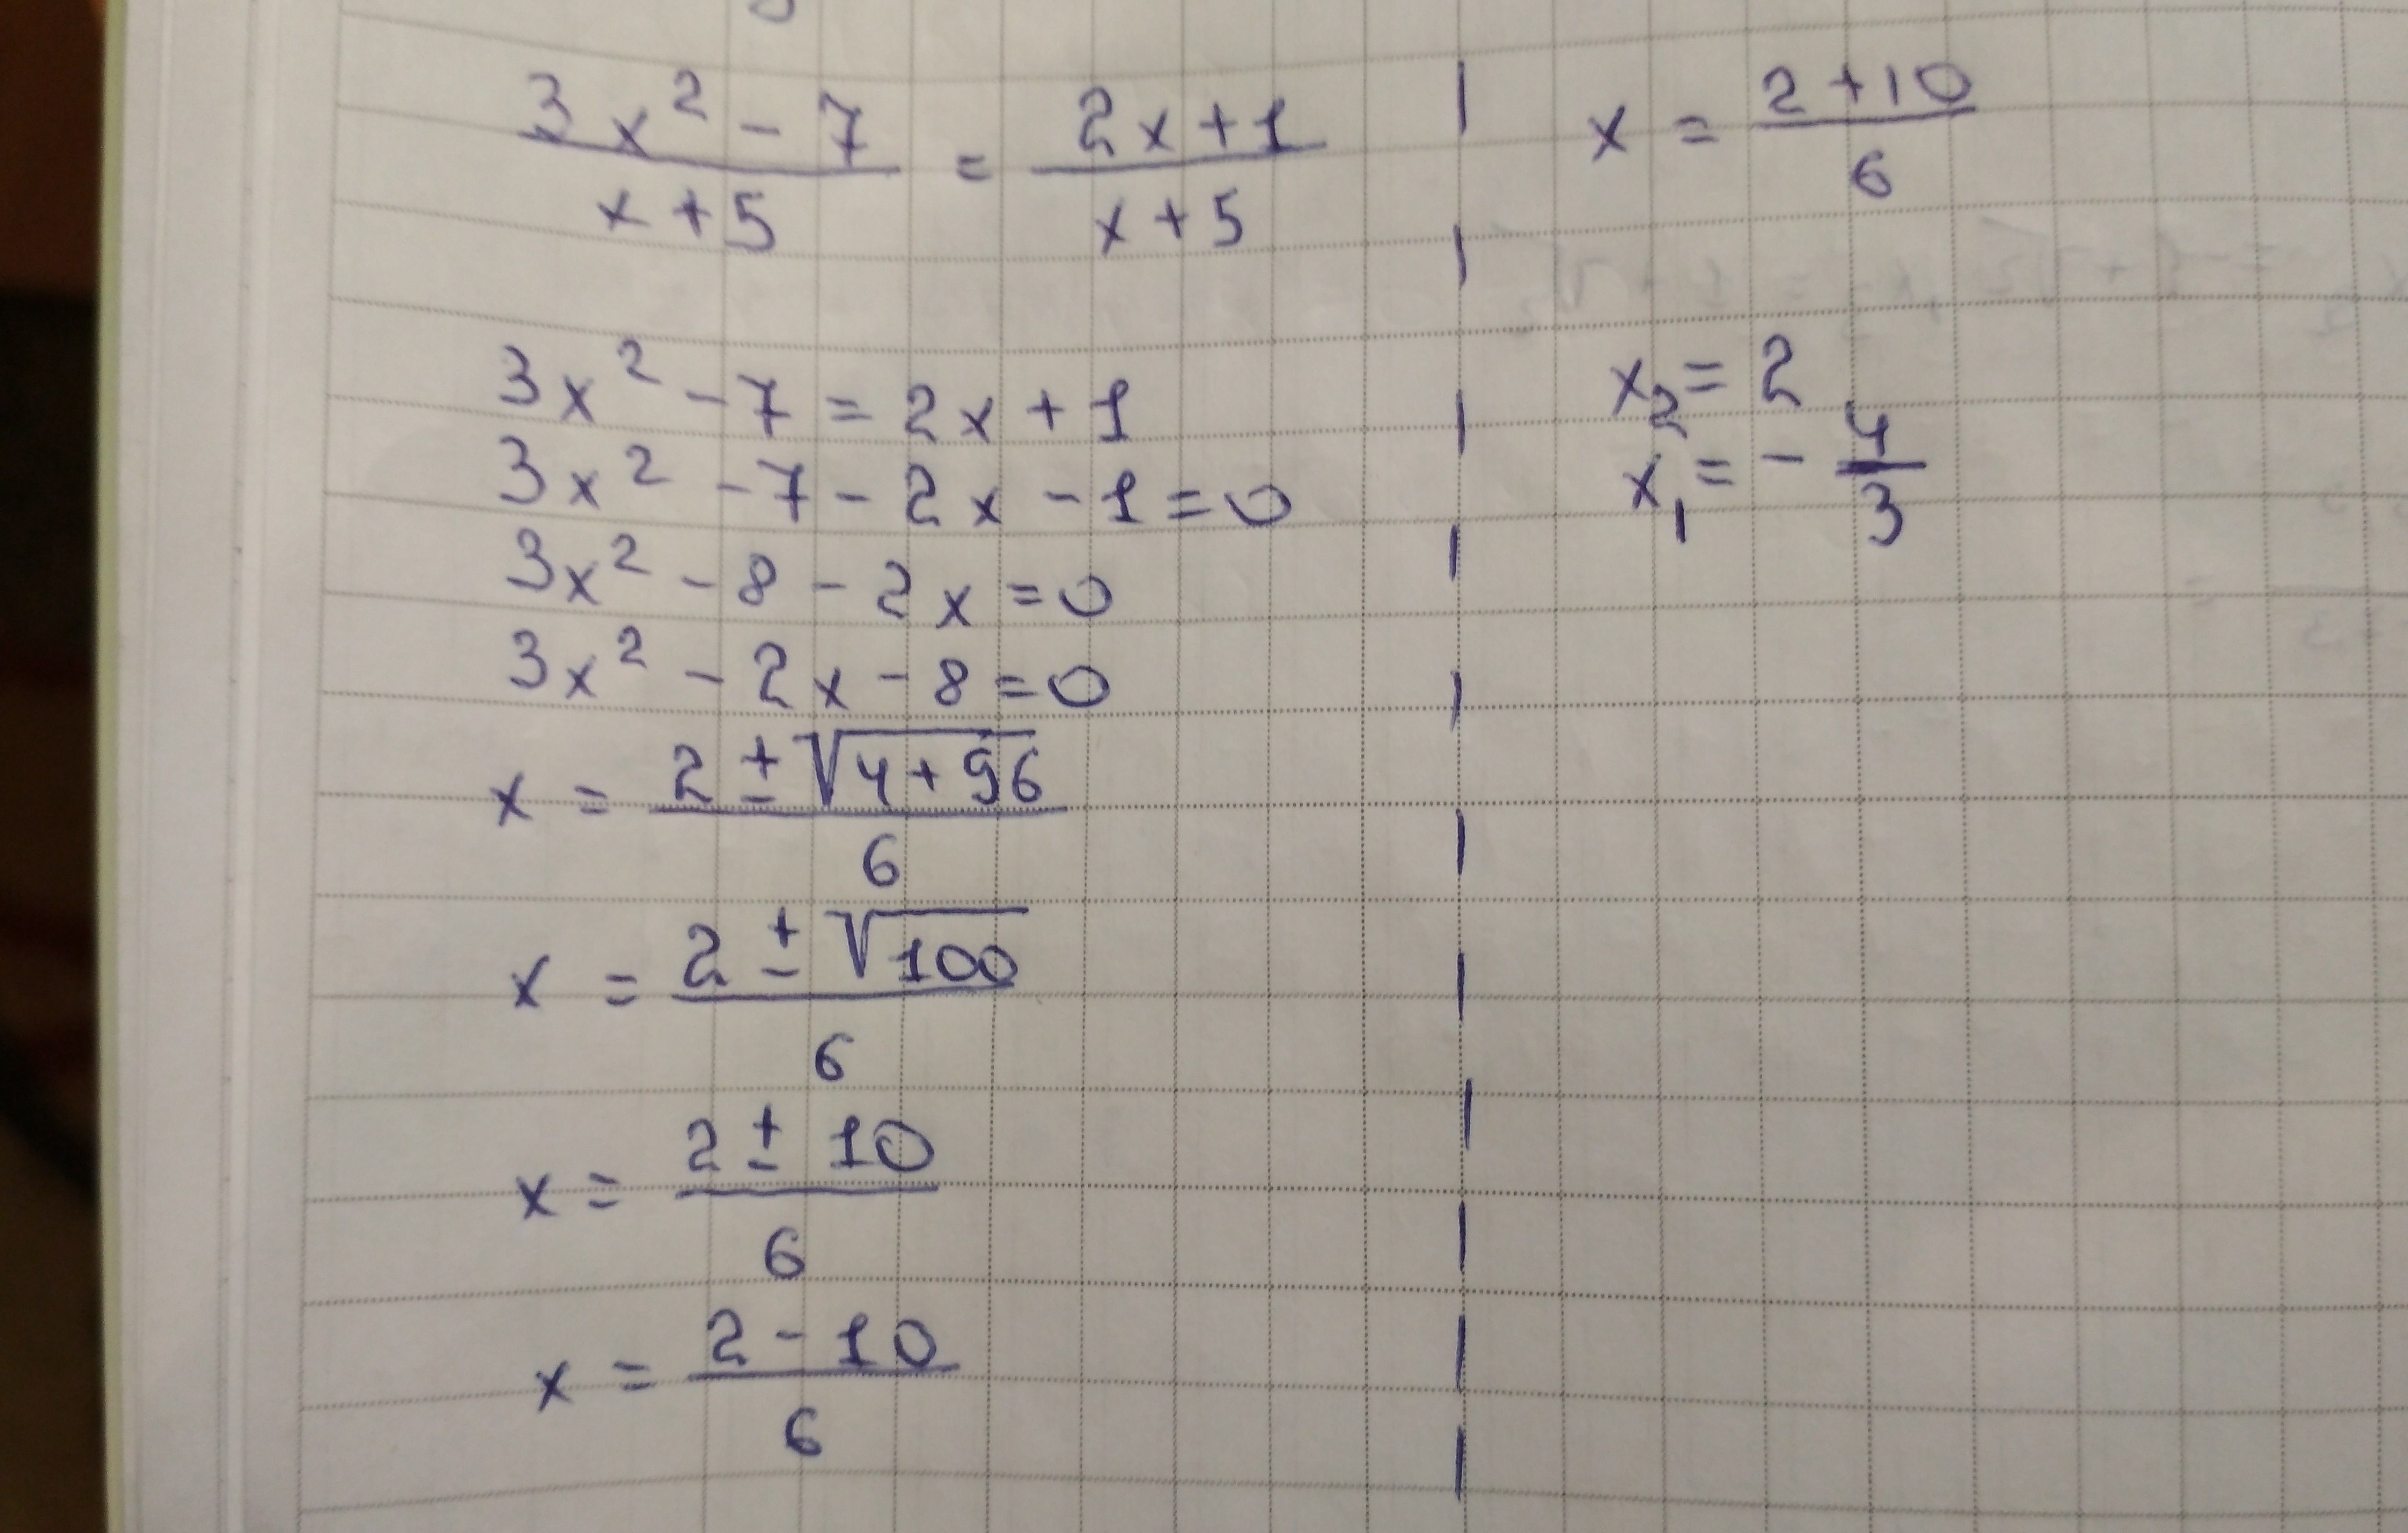 (3x² - 7)/(x + 5) = (2x + 1)/(x + 5)
3x² - 7 = 2x + 1
3x² - 7 - 2x - 1 = 0
3x² - 8 - 2x = 0
3x² - 2x - 8 = 0
x = (2 ± √(4 + 96))/6
x = (2 ± √100)/6
x = (2 ± 10)/6
x = (2 - 10)/6
x = (2 + 10)/6
x₂ = 2
x₁ = - 4/3